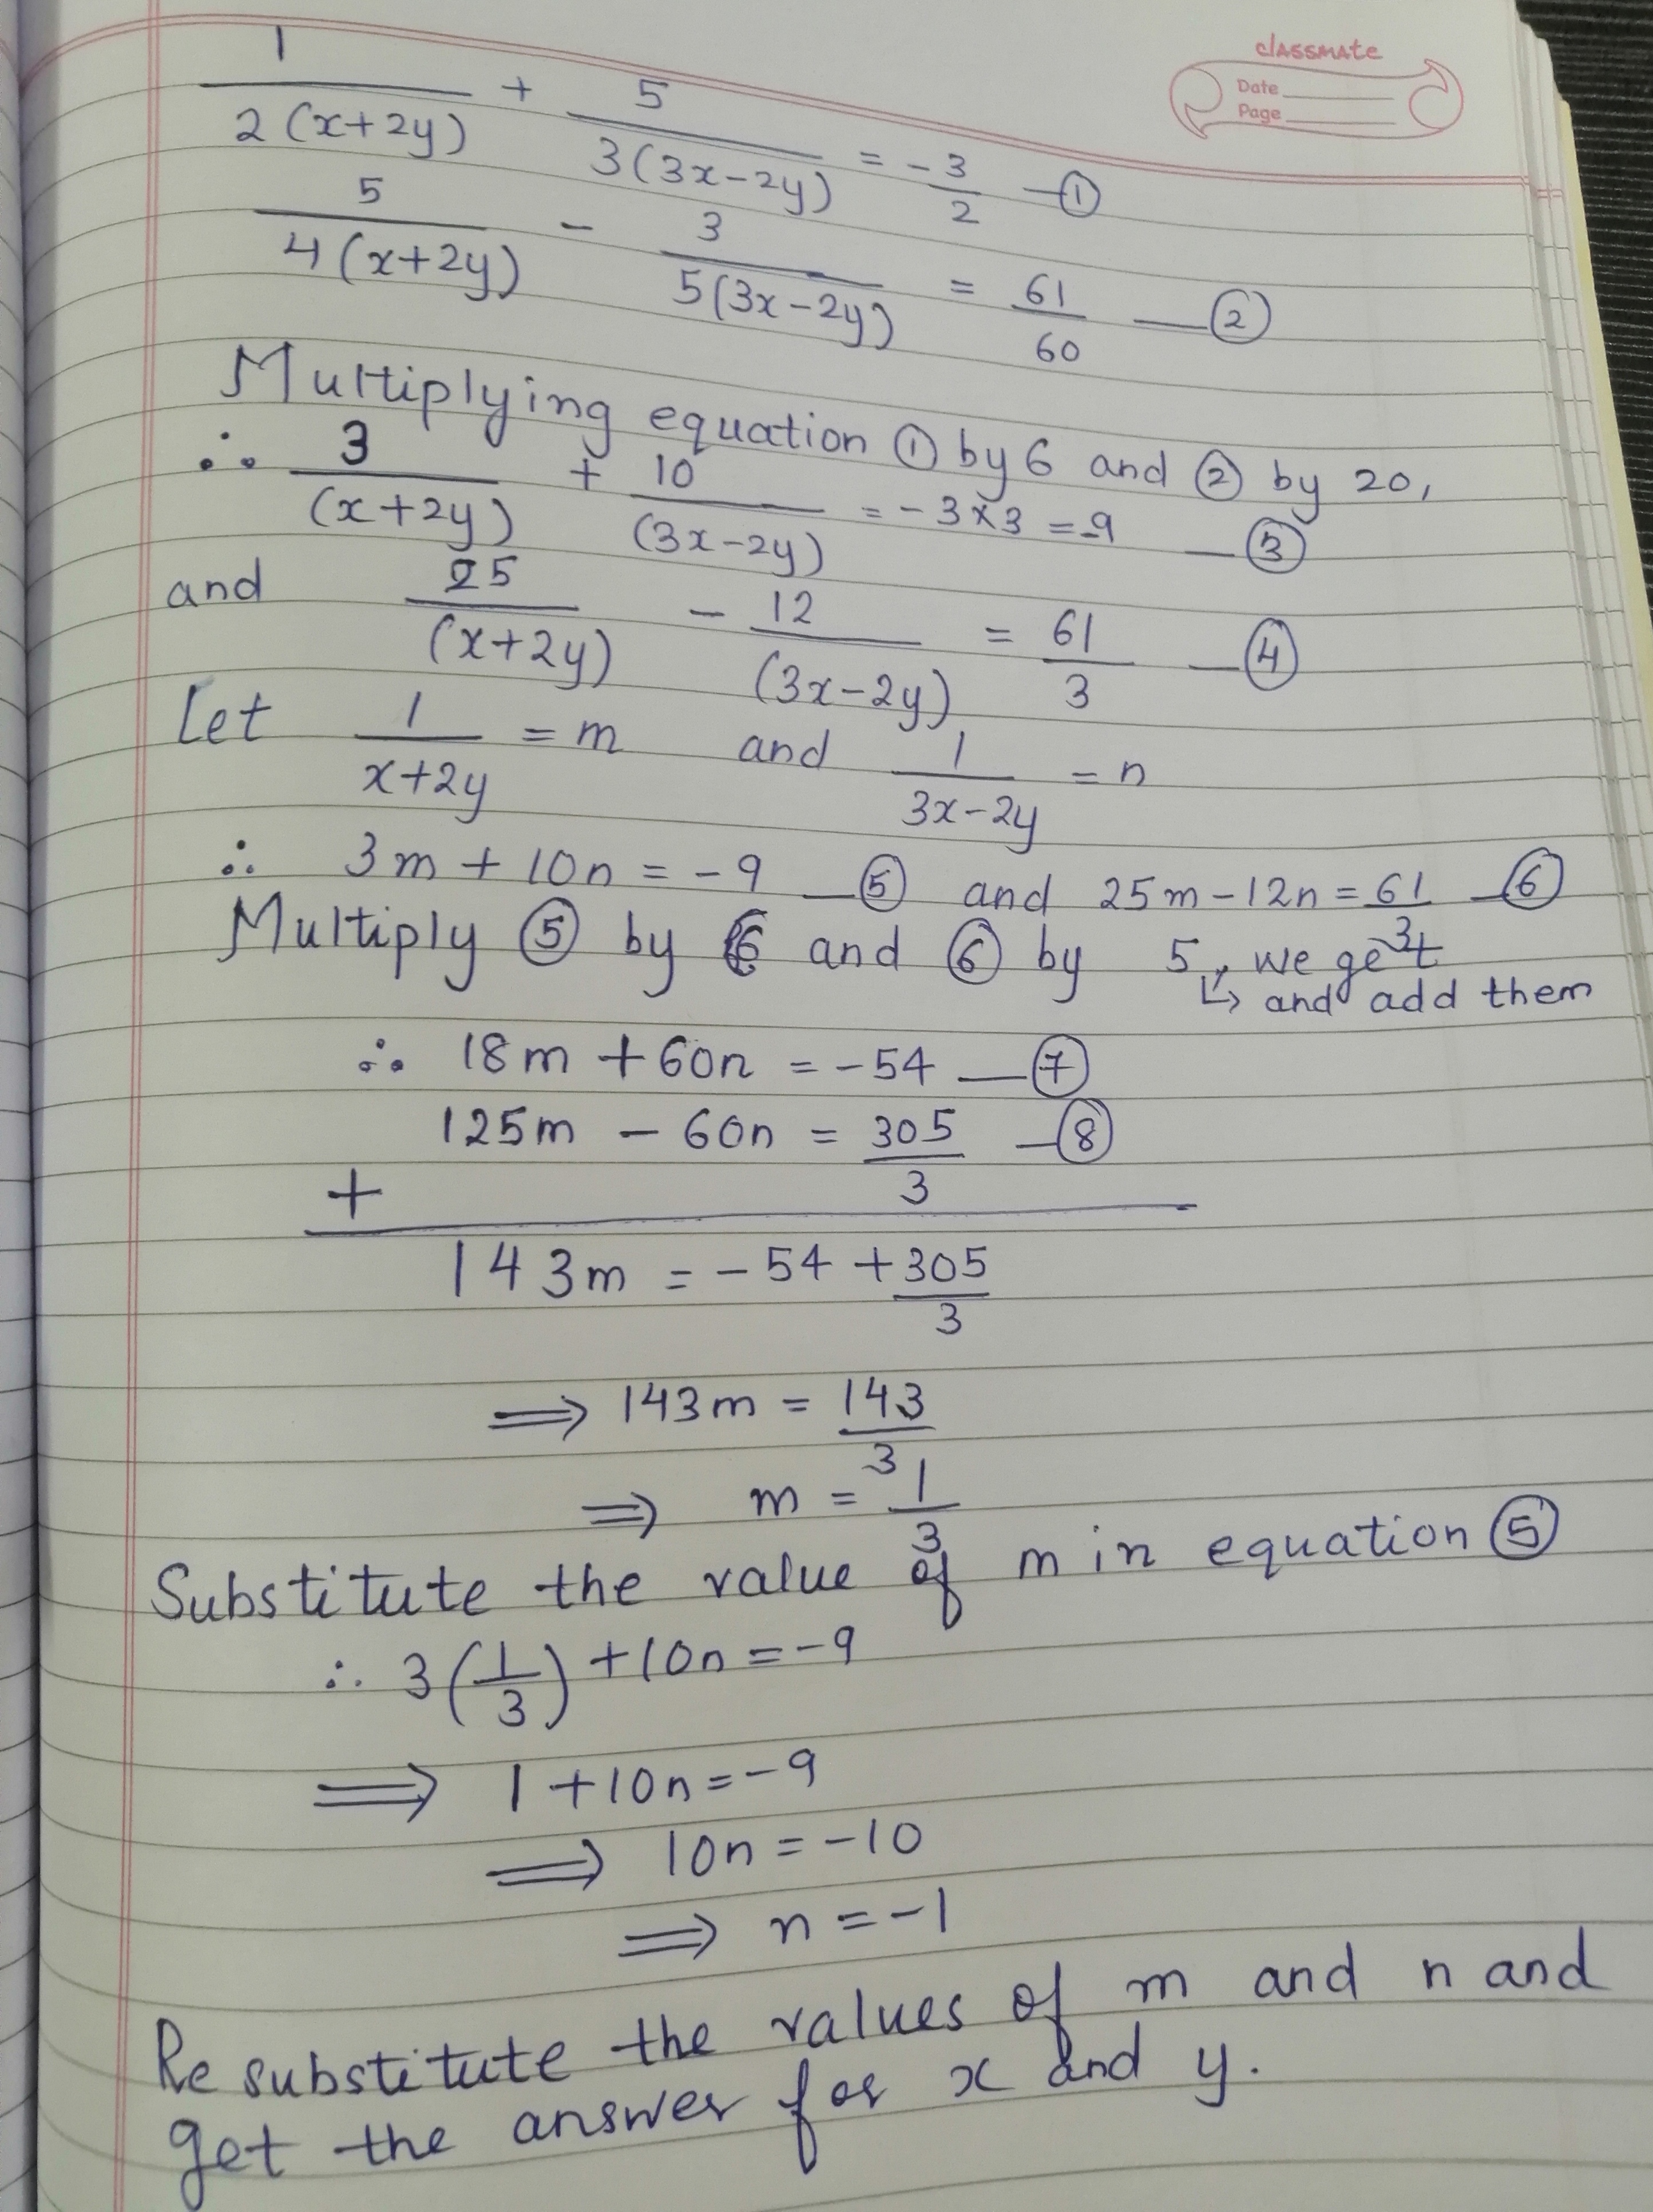 classmate
Date
Page
1/2(x+2y) + 5/3(3x-2y) = -3/2 —①
5/4(x+2y) - 3/5(3x-2y) = 61/60 —②
Multiplying equation ① by 6 and ② by 20,
∴ 3/(x+2y) + 10/(3x-2y) = -3×3 = -9 —③
and 25/(x+2y) - 12/(3x-2y) = 61/3 —④
Let 1/x+2y = m and 1/3x-2y = n
∴ 3m + 10n = -9 —⑤ and 25m - 12n = 61/3 —⑥
Multiply ⑤ by 6 and ⑥ by 5, we get
↳ and add them
∴ 18m + 60n = -54 —⑦
125m - 60n = 305/3 —⑧
+
143m = -54 + 305/3
⟹ 143m = 143/3
⟹ m = 1/3
Substitute the value of m in equation ⑤
∴ 3(1/3) + 10n = -9
⟹ 1 + 10n = -9
⟹ 10n = -10
⟹ n = -1
Resubstitute the values of m and n and
get the answer for x and y.